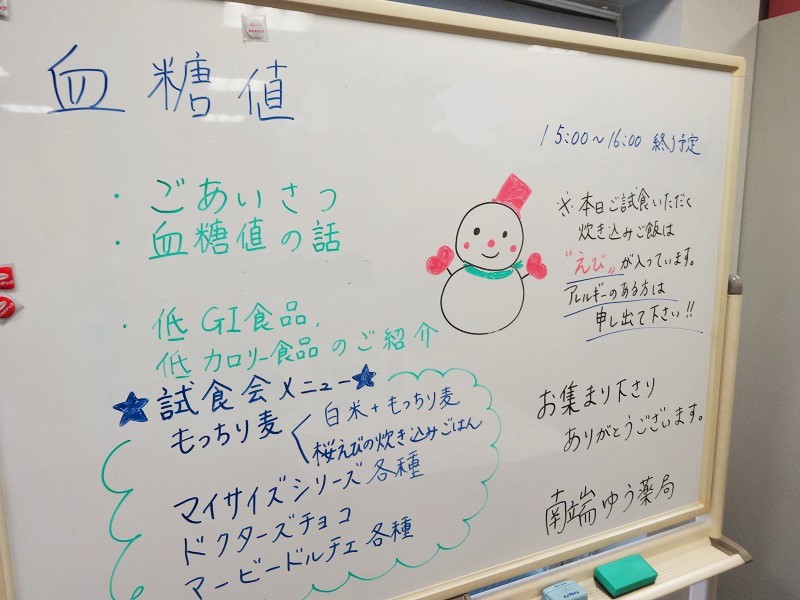 血糖値
・ごあいさつ
・血糖値の話
・低GI食品,
低カロリー食品のご紹介
★試食会メニュー★
もっちり麦
白米+もっちり麦
桜えびの炊き込みごはん
マイサイズシリーズ各種
ドクターズチョコ
マービードルチェ各種
15:00~16:00 終了予定
※本日ご試食いただく
炊き込みご飯は
"えび"が入っています。
アレルギーのある方は
申し出て下さい!!
お集まり下さり
ありがとうございます。
南端ゆう薬局